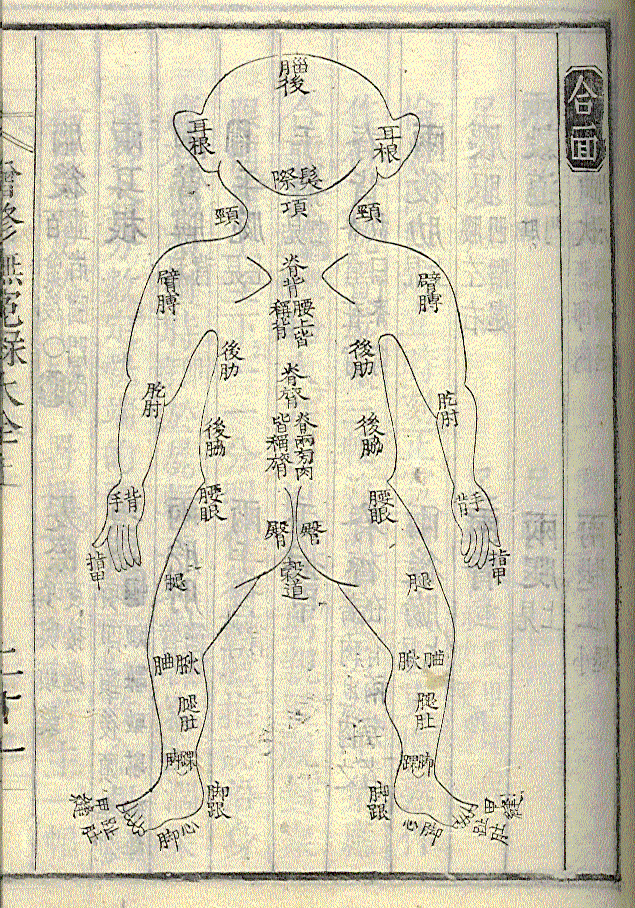 合面
腦後
耳根
耳根
髮際
項
頸
頸
脊背
腰上皆
稱背
臂膊
臂膊
後肋
後肋
脊膂
脊兩旁肉
皆稱膂
肐肘
肐肘
後脇
後脇
腰眼
腰眼
手背
手背
指甲
指甲
臀
臀
穀道
腿
腿
腿肚
腿肚
脚踝
脚踝
脚跟
脚跟
脚心
脚心
增修無冤錄大全
二十一